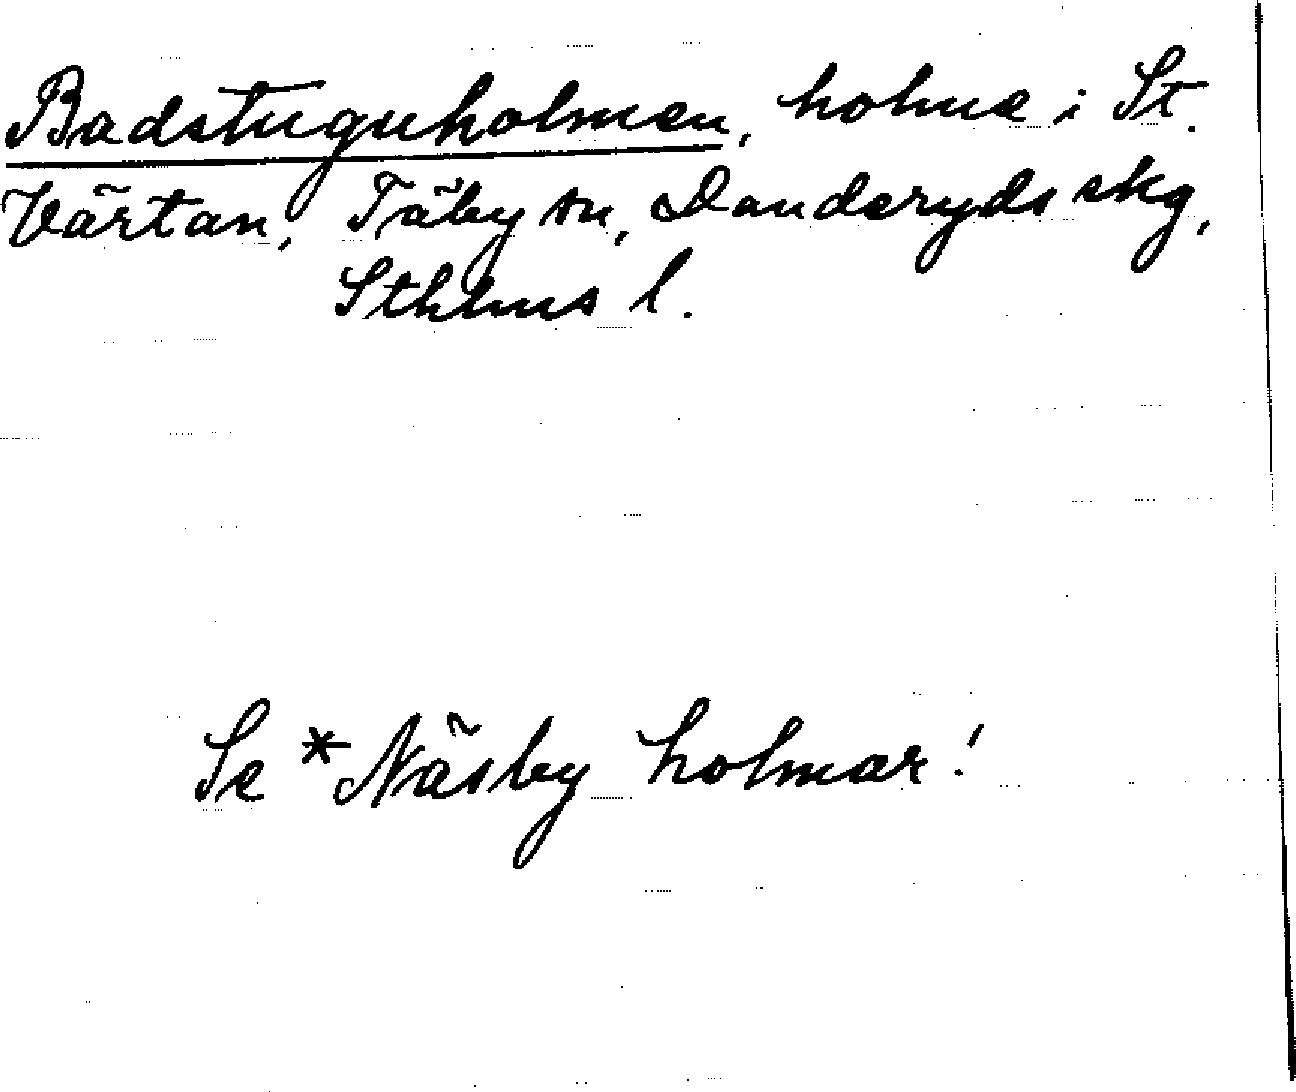 Badstuguholmen, holme i St.
Värtan, Täby sn, Danderyds skg,
Sthlms l.
Se *Näsby holmar!